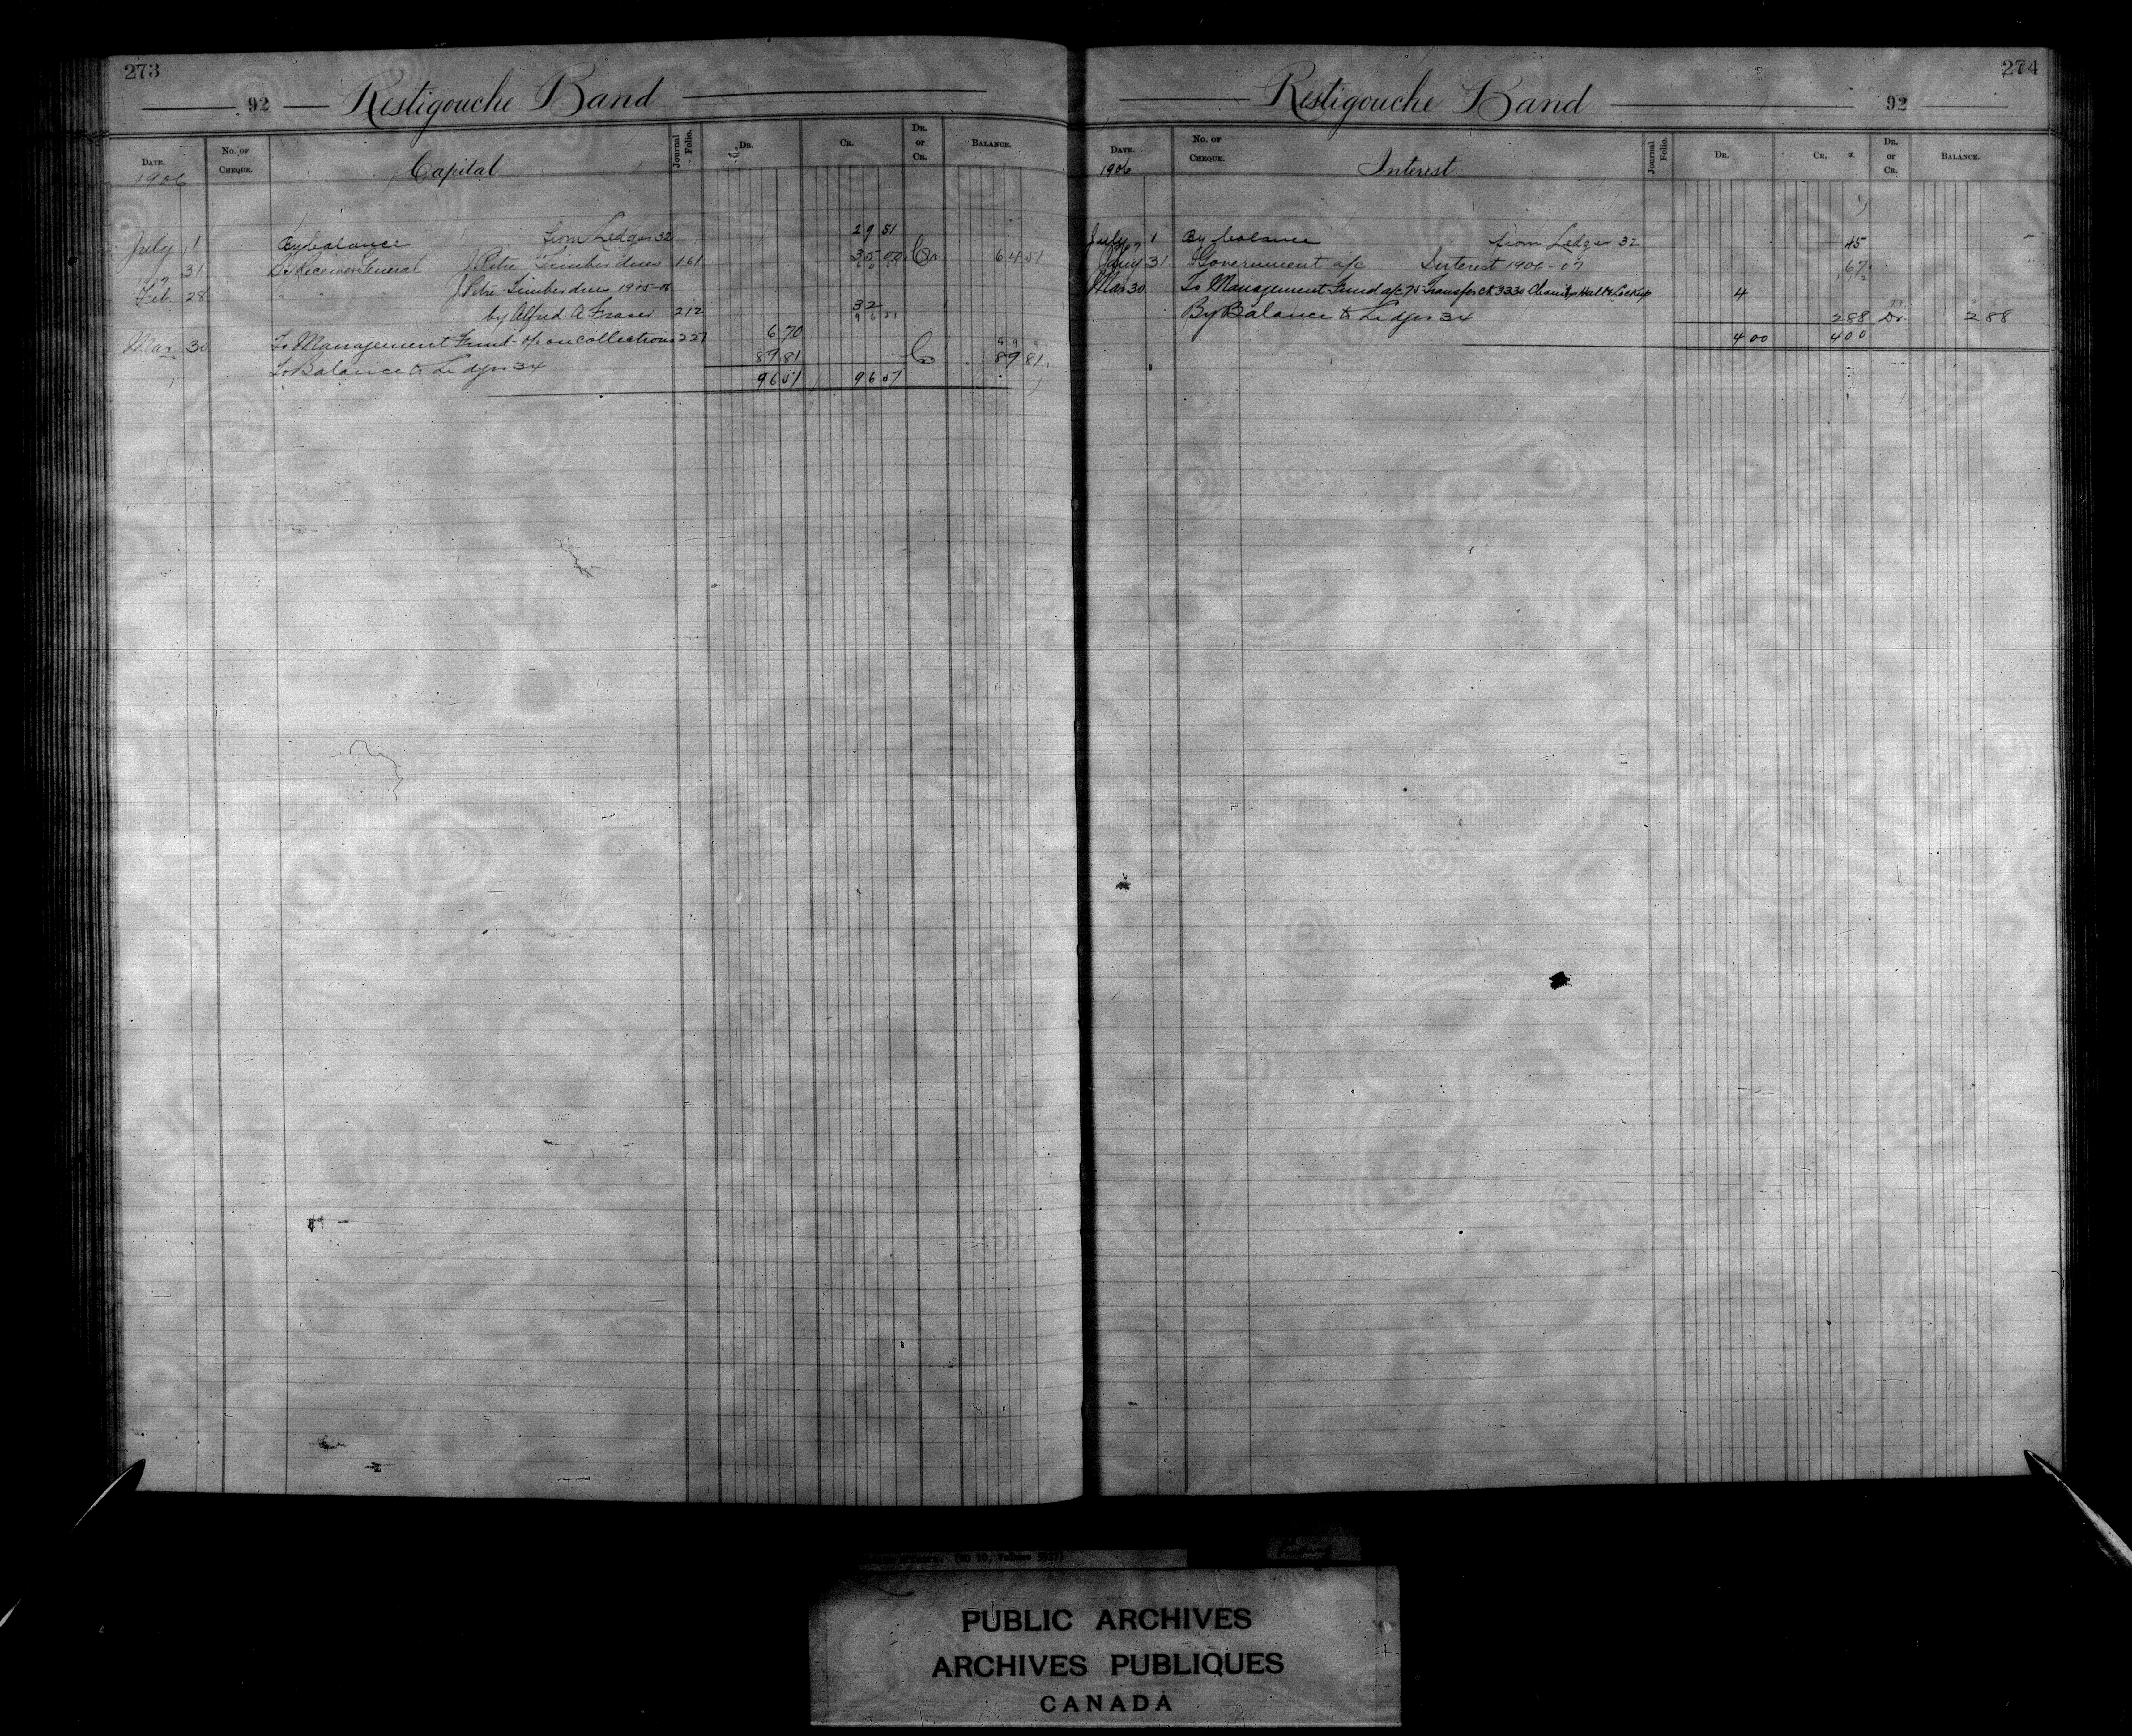 273
92 Restigouche Band
DATE. No. OF CHEQUE. Capital Journal Folio. DR. CR. DR. or CR. BALANCE.
1906
July 1 By balance from Ledger 32 29 51
31 By Receiver General J. Petre Timber dues 161 35 00 Cr. 64 51
1907
Feb. 28 " " J Petre Timber dues 1905-06
by Alfred A. Fraser 212 32
96 51
Mar 30 To Management Fund - o/o on collections 227 6 70
To Balance to Ledger 34 89 81 Cr 89 81
96 51 96 51
274
Restigouche Band 92
DATE. No. OF CHEQUE. Interest Journal Folio. DR. CR. DR. or CR. BALANCE.
1906
July 1 By balance from Ledger 32 45
1907
Jany 31 Government a/c Interest 1906-07 67
Mar 30 To Management Fund a/c 75 Transfer ck 3330 Hall & Lockup 4
By Balance to Ledger 34 2 88 Dr. 2 88
4 00 4 00
PUBLIC ARCHIVES
ARCHIVES PUBLIQUES
CANADA